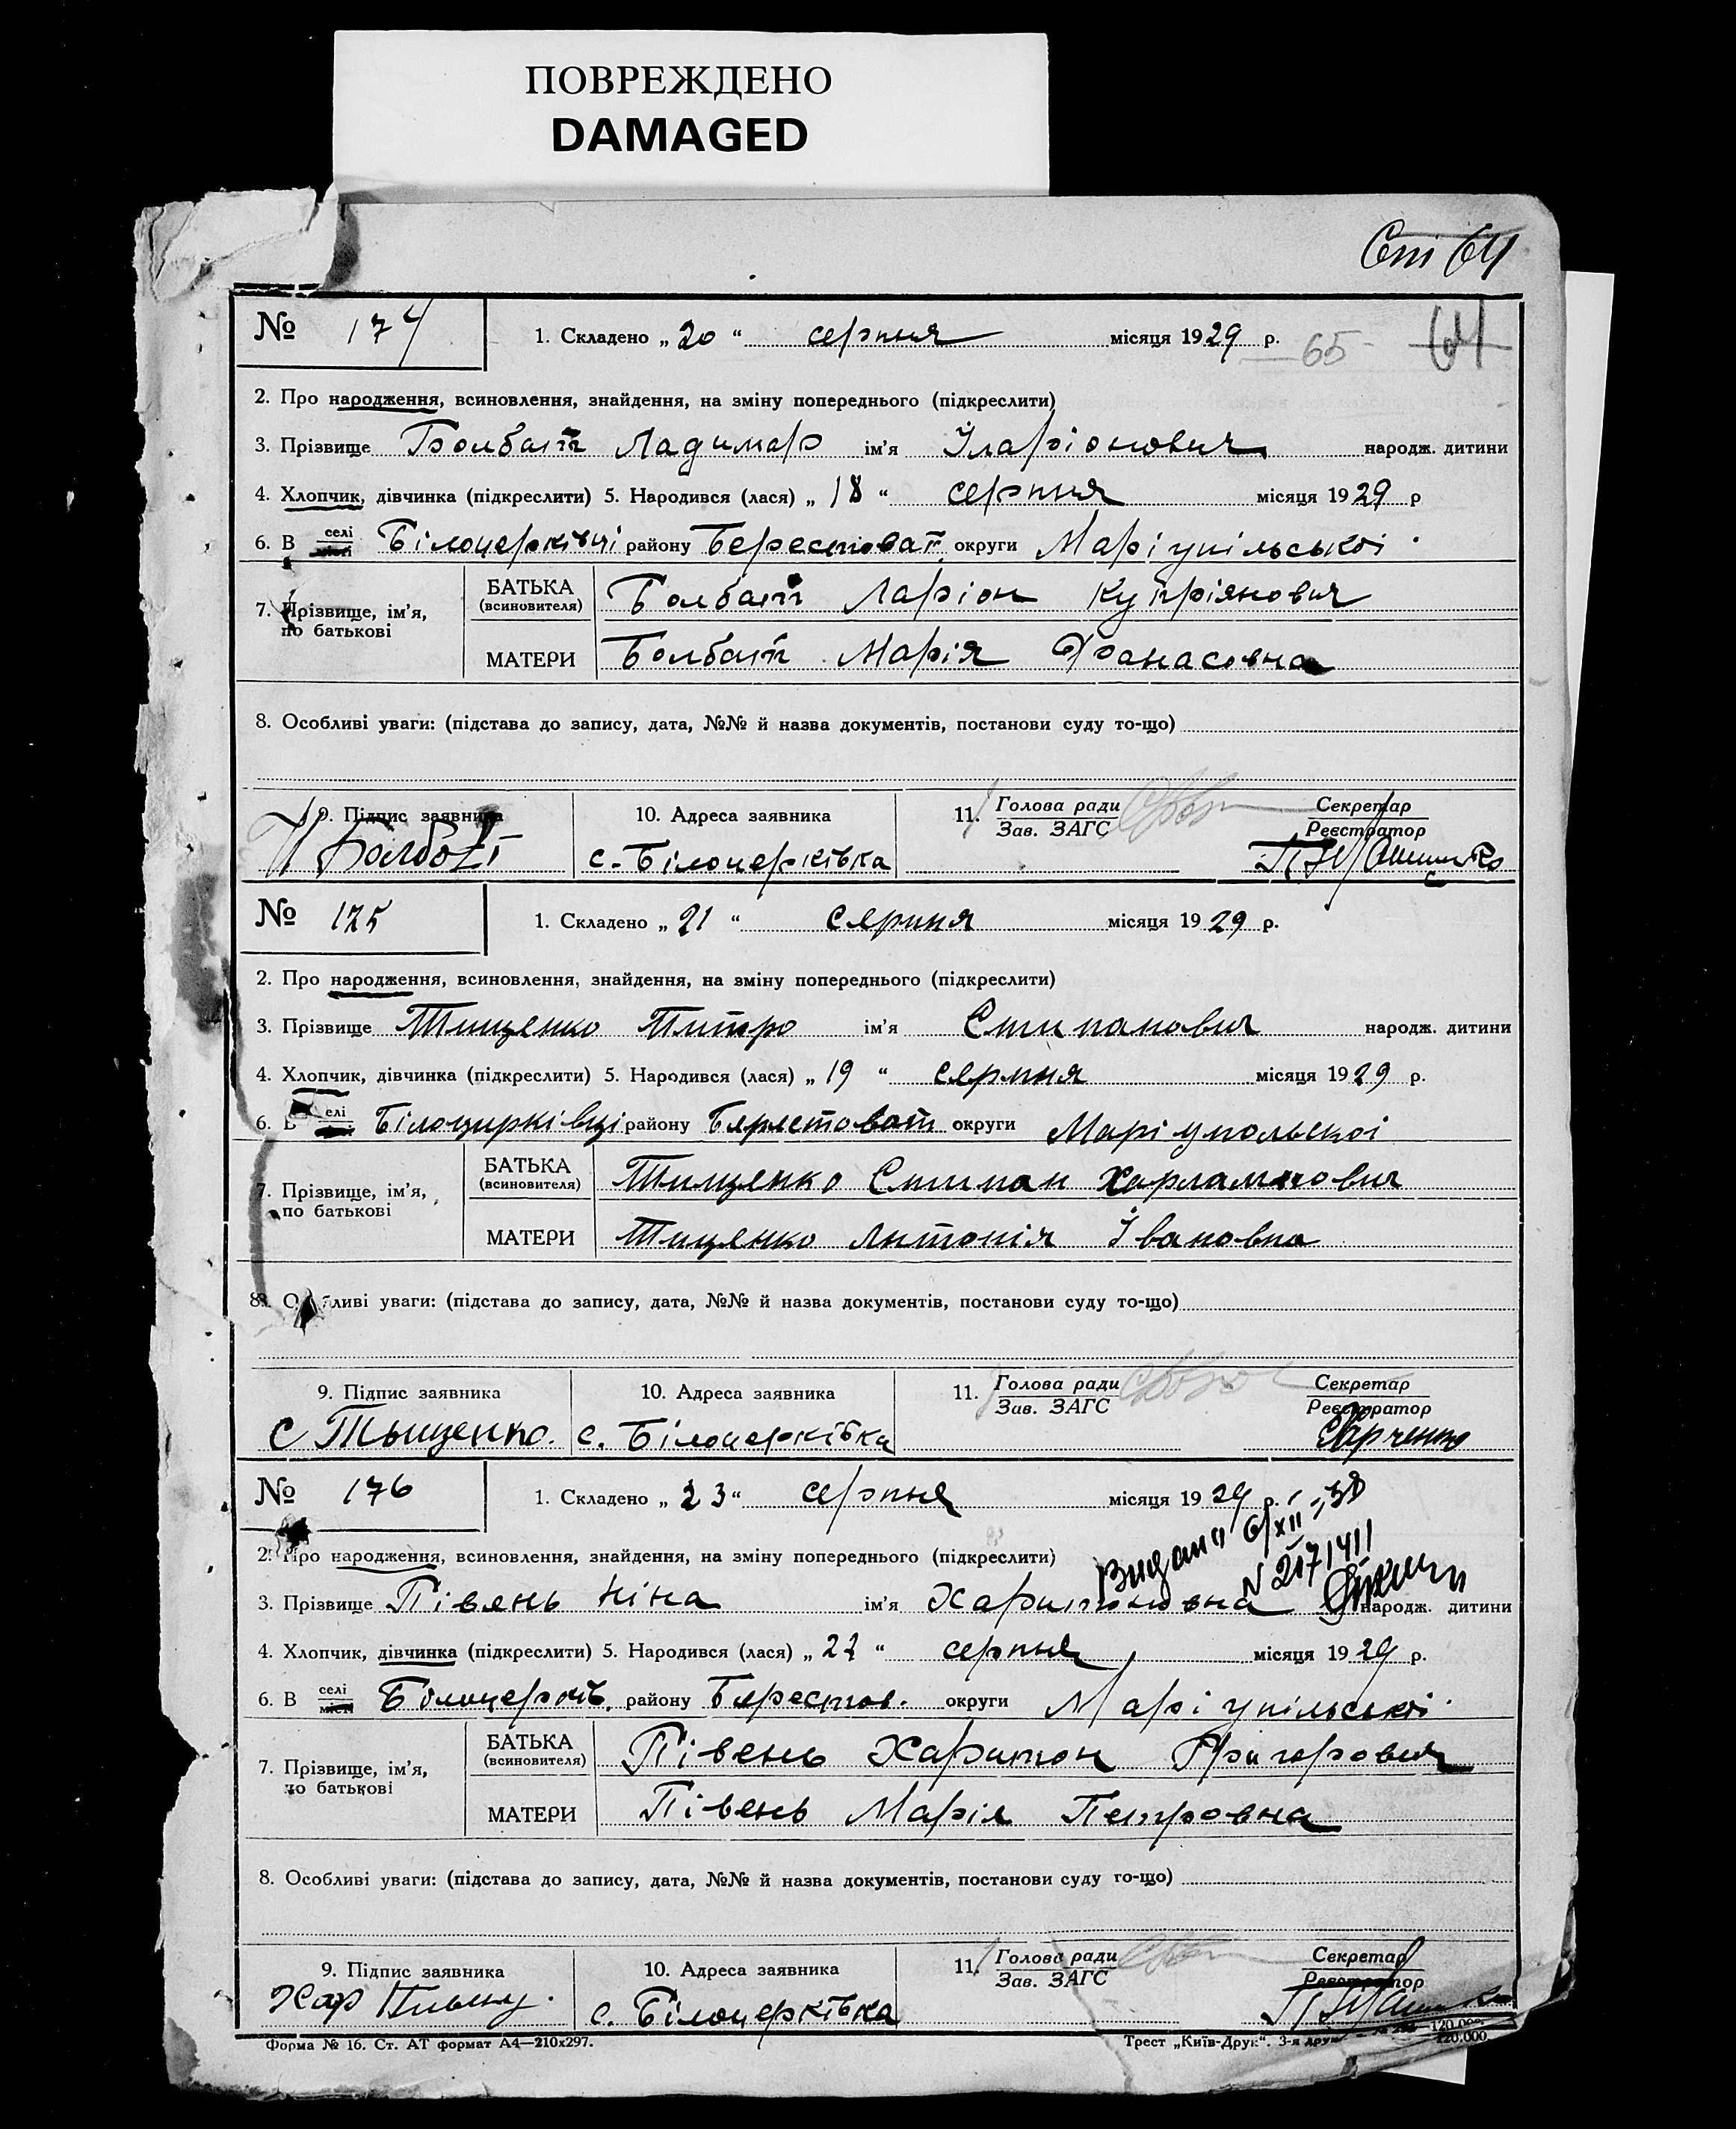 ПОВРЕЖДЕНО
DAMAGED
64
№ 174
1. Складено „ 20 “ серпня місяця 1929 р. 65 64
2. Про народження, всиновлення, знайдення, на зміну попереднього (підкреслити)
3. Прізвище Болбат Ладимар ім’я Іларіонович народж. дитини
4. Хлопчик, дівчинка (підкреслити) 5. Народився (лася) „ 18 “ серпня місяця 1929 р
6. В селі місті Білоцерківці району Берестоват. округи Маріупільської
7. Прізвище, ім’я, по батькові
БАТЬКА (всиновителя) Болбат Ларіон Купріянович
МАТЕРИ Болбат Марія Фанасовна
8. Особливі уваги: (підстава до запису, дата, №№ й назва документів, постанови суду то-що)
9. Підпис заявника
Болбот
10. Адреса заявника
с. Білоцерківка
11. Голова ради
Зав. ЗАГС
Секретар
Реєстратор
№ 175
1. Складено „ 21 “ серпня місяця 1929 р.
2. Про народження, всиновлення, знайдення, на зміну попереднього (підкреслити)
3. Прізвище Тищенко Питро ім’я Стипанович народж. дитини
4. Хлопчик, дівчинка (підкреслити) 5. Народився (лася) „ 19 “ серпня місяця 1929 р.
6. В селі Білоцирківці району Берестоват округи Маріупольскої
7. Прізвище, ім’я, по батькові
БАТЬКА (всиновителя) Тищенко Стипан Харлампович
МАТЕРИ Тищенко Антонія Івановна
8. Особливі уваги: (підстава до запису, дата, №№ й назва документів, постанови суду то-що)
9. Підпис заявника
С Тыщенко.
10. Адреса заявника
с. Білоцерківка
11. Голова ради
Зав. ЗАГС
Секретар
Реєстратор
№ 176
1. Складено „ 23 “ серпня місяця 1929 р.
2. Про народження, всиновлення, знайдення, на зміну попереднього (підкреслити)
3. Прізвище Півень Ніна ім’я Харитоновна народж. дитини
4. Хлопчик, дівчинка (підкреслити) 5. Народився (лася) „ 22 “ серпня місяця 1929 р.
6. В селі місті Білоцерків. району Берестов. округи Маріупільської
7. Прізвище, ім’я, по батькові
БАТЬКА (всиновителя) Півень Харитон Григорович
МАТЕРИ Півень Марія Петровна
8. Особливі уваги: (підстава до запису, дата, №№ й назва документів, постанови суду то-що)
9. Підпис заявника
Хар
10. Адреса заявника
с. Білоцерківка
11. Голова ради
Зав. ЗАГС
Секретар
Реєстратор
Форма № 16. Ст. АТ формат А4—210х297.
Трест „Київ-Друк“. 3-я друк 120.000